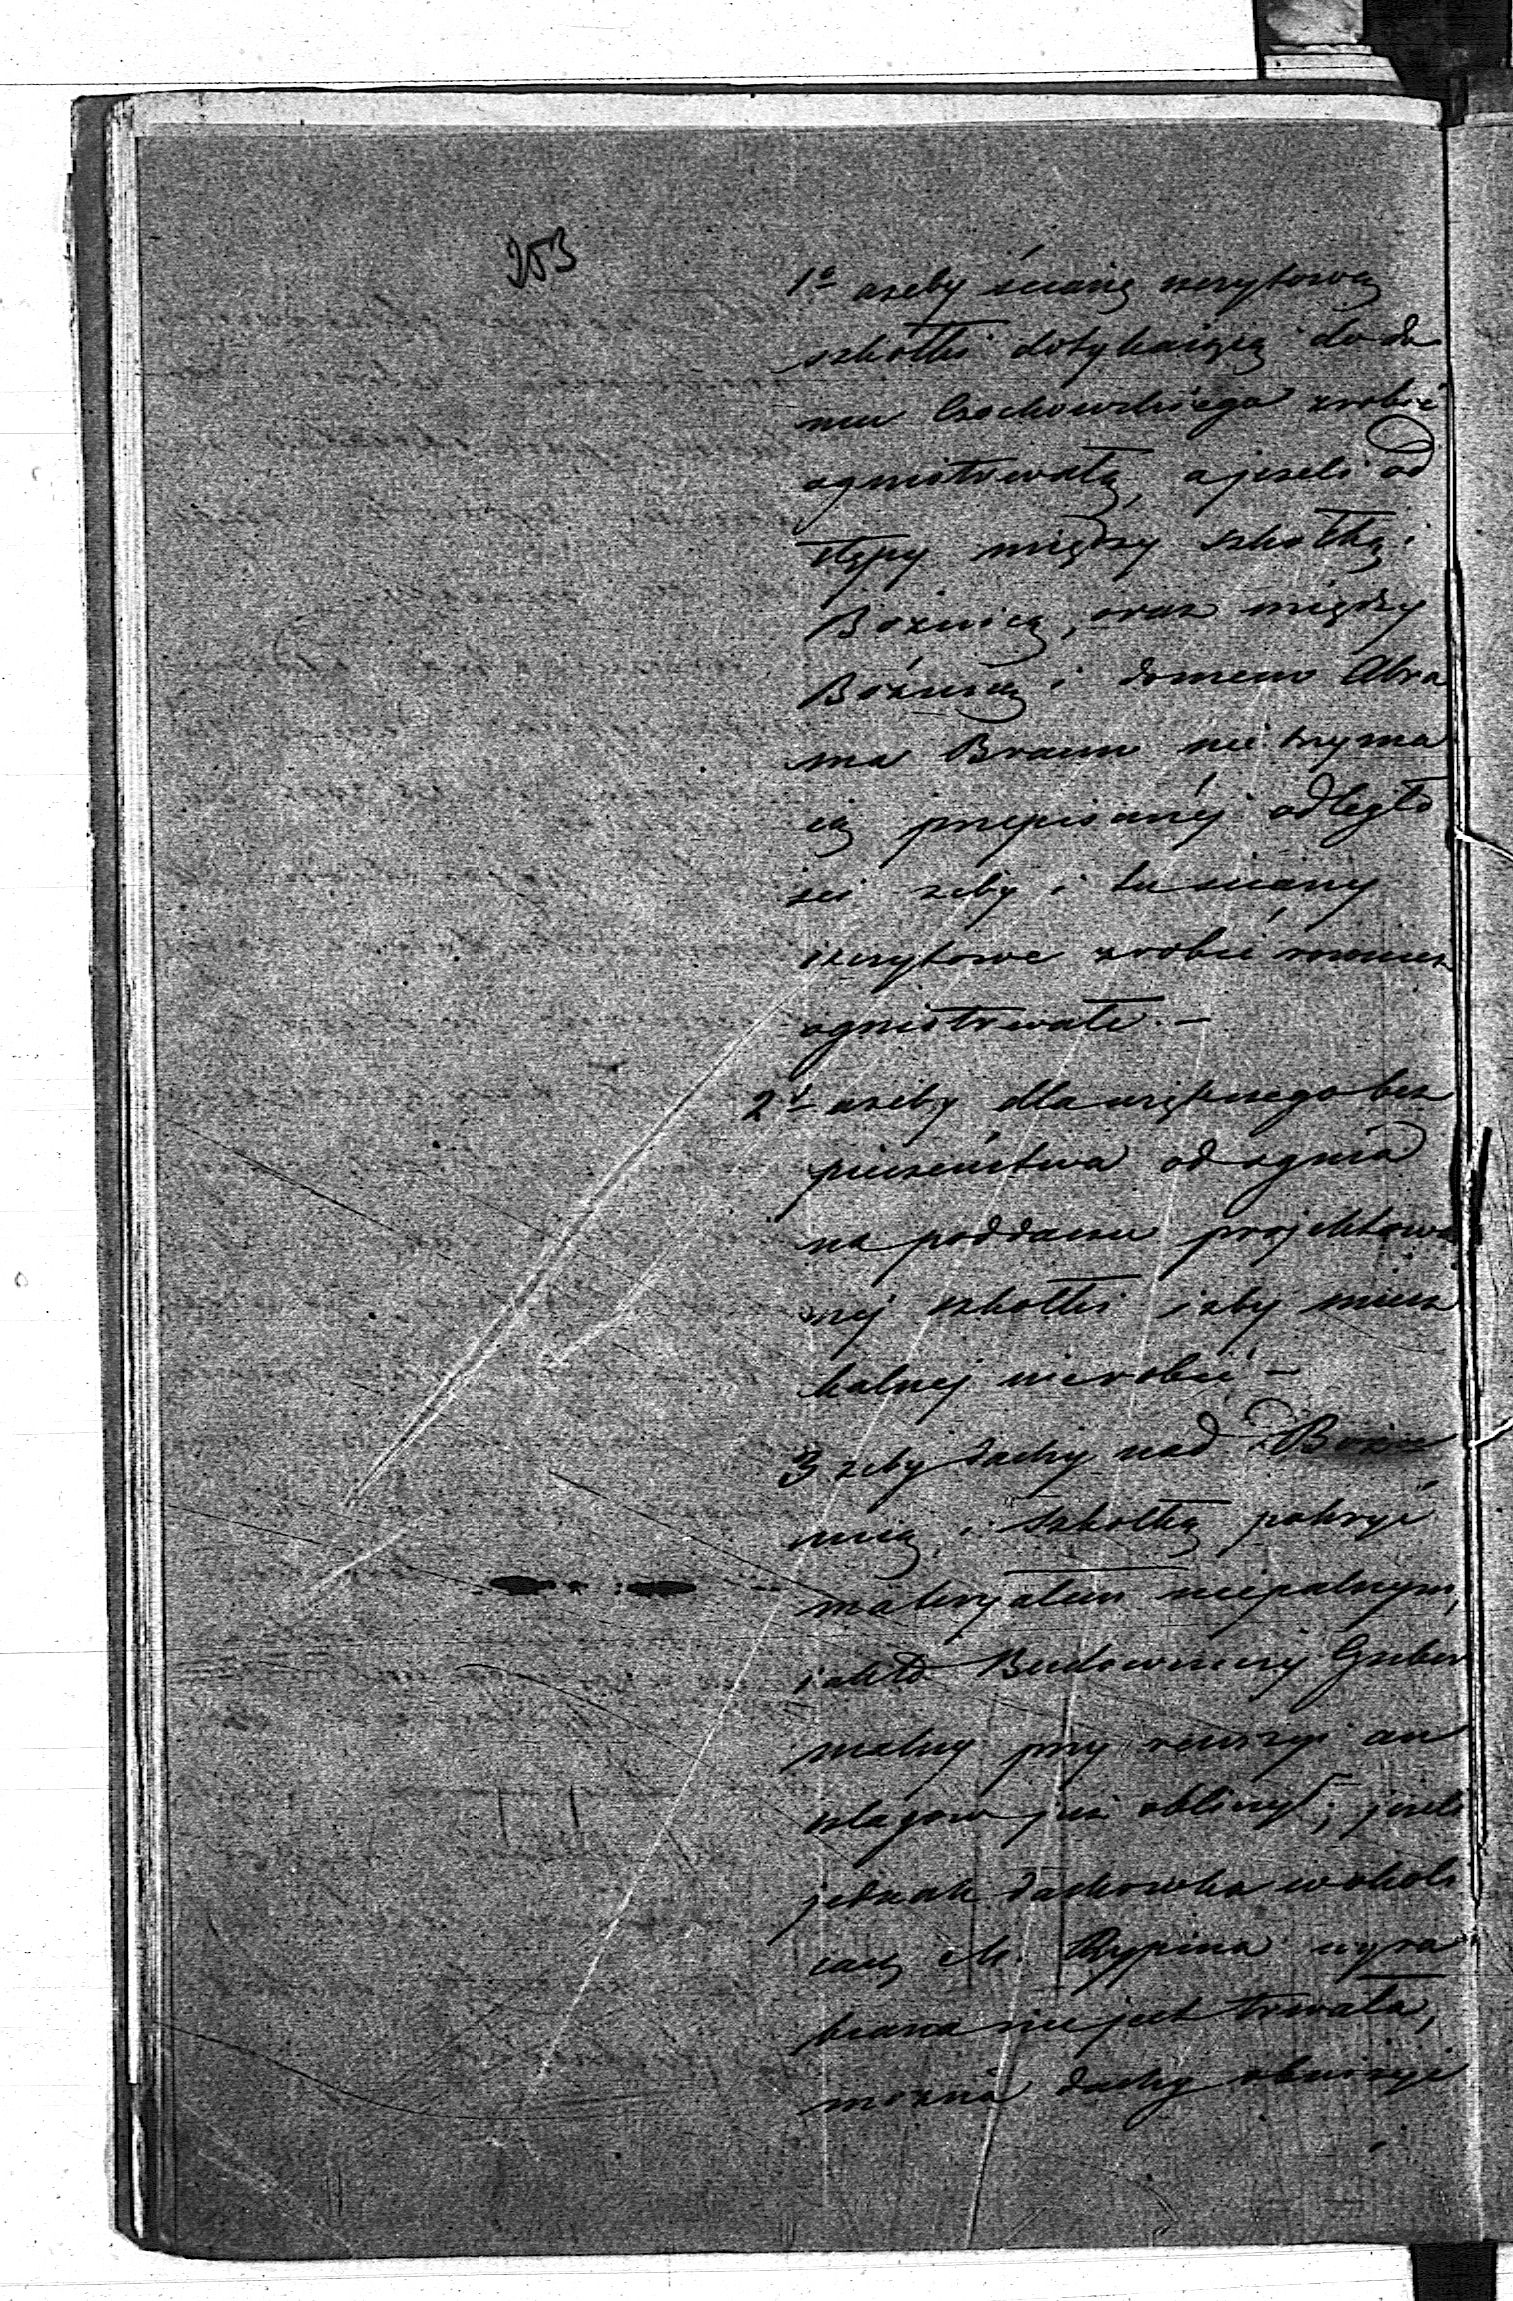 253
1o ażeby ścianę szczytową
szkółki dotykaiącą do do
mu Czochowskiego zrobić
ogniotrwałą, a jeżeli od
stępy między szkółką i
Bożnicą, oraz między
Bożnicą i domem Abra
ma Braun nie trzyma
ią przepisanéj odległo
ści żeby i tu ściany
szczytowe zrobić rownież
ogniotrwałe. –
2o ażeby dla większego bez
pieczeństwa od ognia
na poddaszu projektowa
nej szkółki izby miesz
kalnej nie robić –
3 żeby dachy nad Boż
nicą i szkółką pokryć
materyałem niepalnym,
iak to Budowniczy Guber
nialny przy rewizyi an
szlagow już obliczył; jeżeli
jednak dachowka w okoli
cach M. Rypina wyra
biana nie jest trwała,
można dachy obniżyć